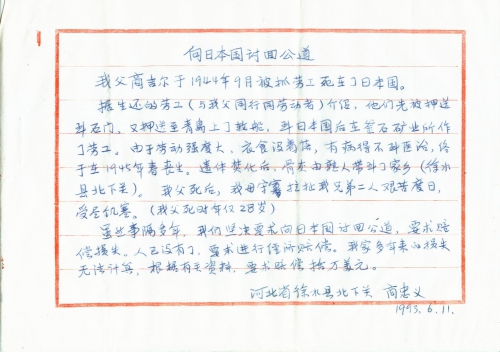 向日本国讨回公道
我父商吉尔于1944年9月被抓劳工死在了日本国。
据生还的劳工(与我父同行同劳动者)介绍,他们先被押送
到石门,又押送至青岛上了轮船,到日本国后在釜石矿业所作
了劳工。由于劳动强度大、衣食没着落,有病得不到医治,终
于在1945年春丧生。遗体焚化后,骨灰由难人带到了家乡(徐水
县北下关)。我父死后,我母守寡拉扯我兄弟二人艰苦度日,
受尽饥寒。(我父死时年仅28岁)
虽此事隔多年,我们坚决要求向日本国讨回公道,要求赔
偿损失。人已没有了,要求进行经济赔偿。我家多年来的损失
无法计算,根据有关资料,要求赔偿拾万美元。
河北省徐水县北下关 商忠义
1993.6.11.